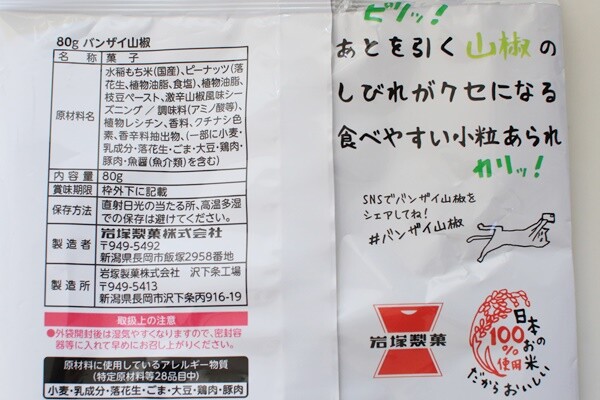 80g バンザイ山椒
名称 菓子
原材料名
水稲もち米(国産)、ピーナッツ(落
花生、植物油脂、食塩)、植物油脂、
枝豆ペースト、激辛山椒風味シー
ズニング / 調味料(アミノ酸等)、
植物レシチン、香料、クチナシ色
素、香辛料抽出物、(一部に小麦・
乳成分・落花生・ごま・大豆・鶏肉・
豚肉・魚醤(魚介類)を含む)
内容量 80g
賞味期限 枠外下に記載
保存方法
直射日光の当たる所、高温多湿
での保存は避けてください。
製造者
岩塚製菓株式会社
〒949-5492
新潟県長岡市飯塚2958番地
製造所
岩塚製菓株式会社 沢下条工場
〒949-5413
新潟県長岡市沢下条丙916-19
取扱上の注意
●外袋開封後は湿気やすくなりますので、密封容
器等に入れて早めにお召し上がりください。
原材料に使用しているアレルギー物質
(特定原材料等28品目中)
小麦・乳成分・落花生・ごま・大豆・鶏肉・豚肉
ピリッ!
あとを引く山椒の
しびれがクセになる
食べやすい小粒あられ
カリッ!
SNSでバンザイ山椒を
シェアしてね!
#バンザイ山椒
岩塚製菓
日本のお米
100%
使用
だからおいしい